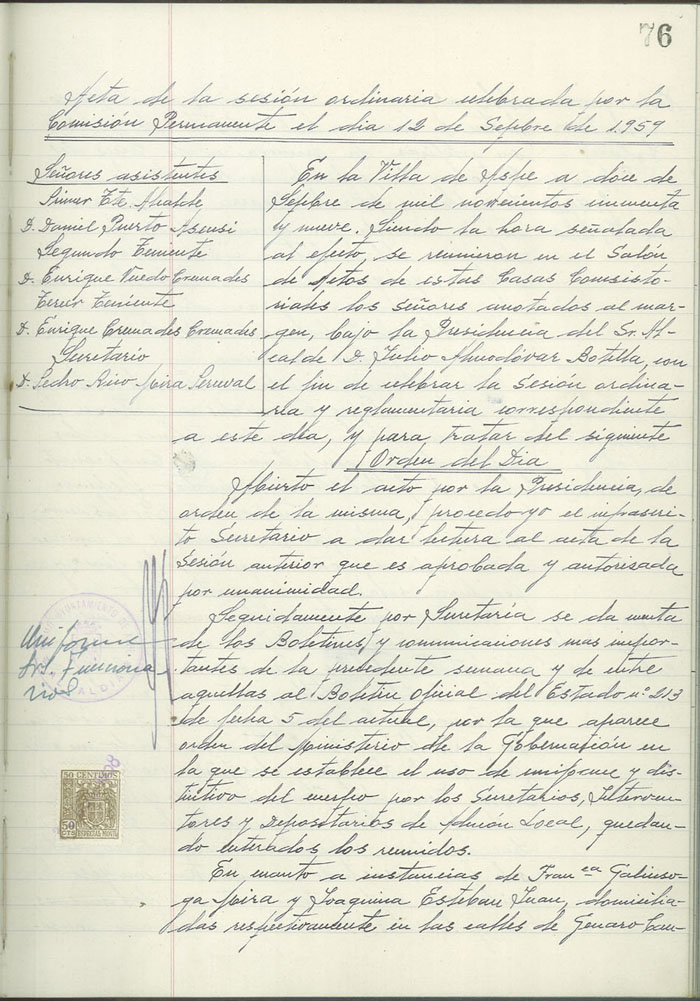 76
Acta de la sesión ordinaria celebrada por la
Comisión Permanente el dia 12 de Sepbre de 1.959
Señores asistentes
Primer Tte Alcalde
D. Daniel Puerto Asensi
Segundo Teniente
D. Enrique Vuedo Cremades
Tercer Teniente
D. Enrique Cremades Cremades
Secretario
D. Pedro Rico Mira Perceval
En la Villa de Aspe a doce de
Sepbre de mil novecientos cincuenta
y nueve. Siendo la hora señalada
al efecto, se reunieron en el Salón
de Actos de estas Casas Consisto-
riales los señores anotados al mar-
gen, bajo la Presidencia del Sr. Al-
calde D. Julio Almodóvar Botella, con
el fin de celebrar la Sesión ordina-
ria y reglamentaria correspondiente
a este día, y para tratar del siguiente
Orden del Dia
Abierto el acto por la Presidencia, de
orden de la misma, procedo yo el infrascri-
to Secretario a dar lectura al acta de la
Sesión anterior que es aprobada y autorizada
por unanimidad.
Uniforme
Srs. Funciona
rios
AYUNTAMIENTO DE
ALCALDIA
Seguidamente por Secretaría se da cuenta
de los Boletines y comunicaciones mas impor-
tantes de la precedente semana y de entre
aquellas al Boletin Oficial del Estado nº 213
de fecha 5 del actual, por la que aparece
orden del Ministerio de la Gobernación en
la que se establece el uso de uniforme y dis-
tintivo del cuerpo por los Secretarios, Interven-
tores y Depositarios de Admón Local, quedan-
do enterados los reunidos.
50 CENTIMOS
50
CTS
ESPECIAS MOVLS
En cuanto a instancias de Fran.ca Galinso-
ga Mira y Joaquina Esteban Juan, domicilia-
das respectivamente en las calles de Genaro Can-